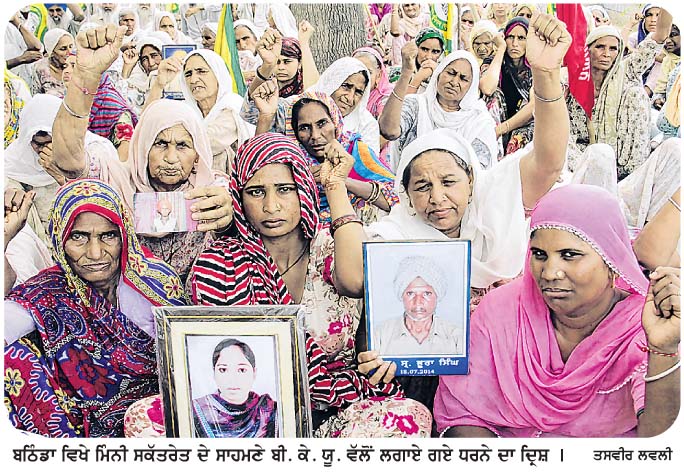 ਸ੍ਰ. ਬੂਰਾ ਸਿੰਘ
18.07.2014
ਬਠਿੰਡਾ ਵਿਖੇ ਮਿਨੀ ਸਕੱਤਰੇਤ ਦੇ ਸਾਹਮਣੇ ਬੀ. ਕੇ. ਯੂ. ਵੱਲੋਂ ਲਗਾਏ ਗਏ ਧਰਨੇ ਦਾ ਦ੍ਰਿਸ਼ । ਤਸਵੀਰ ਲਵਲੀ